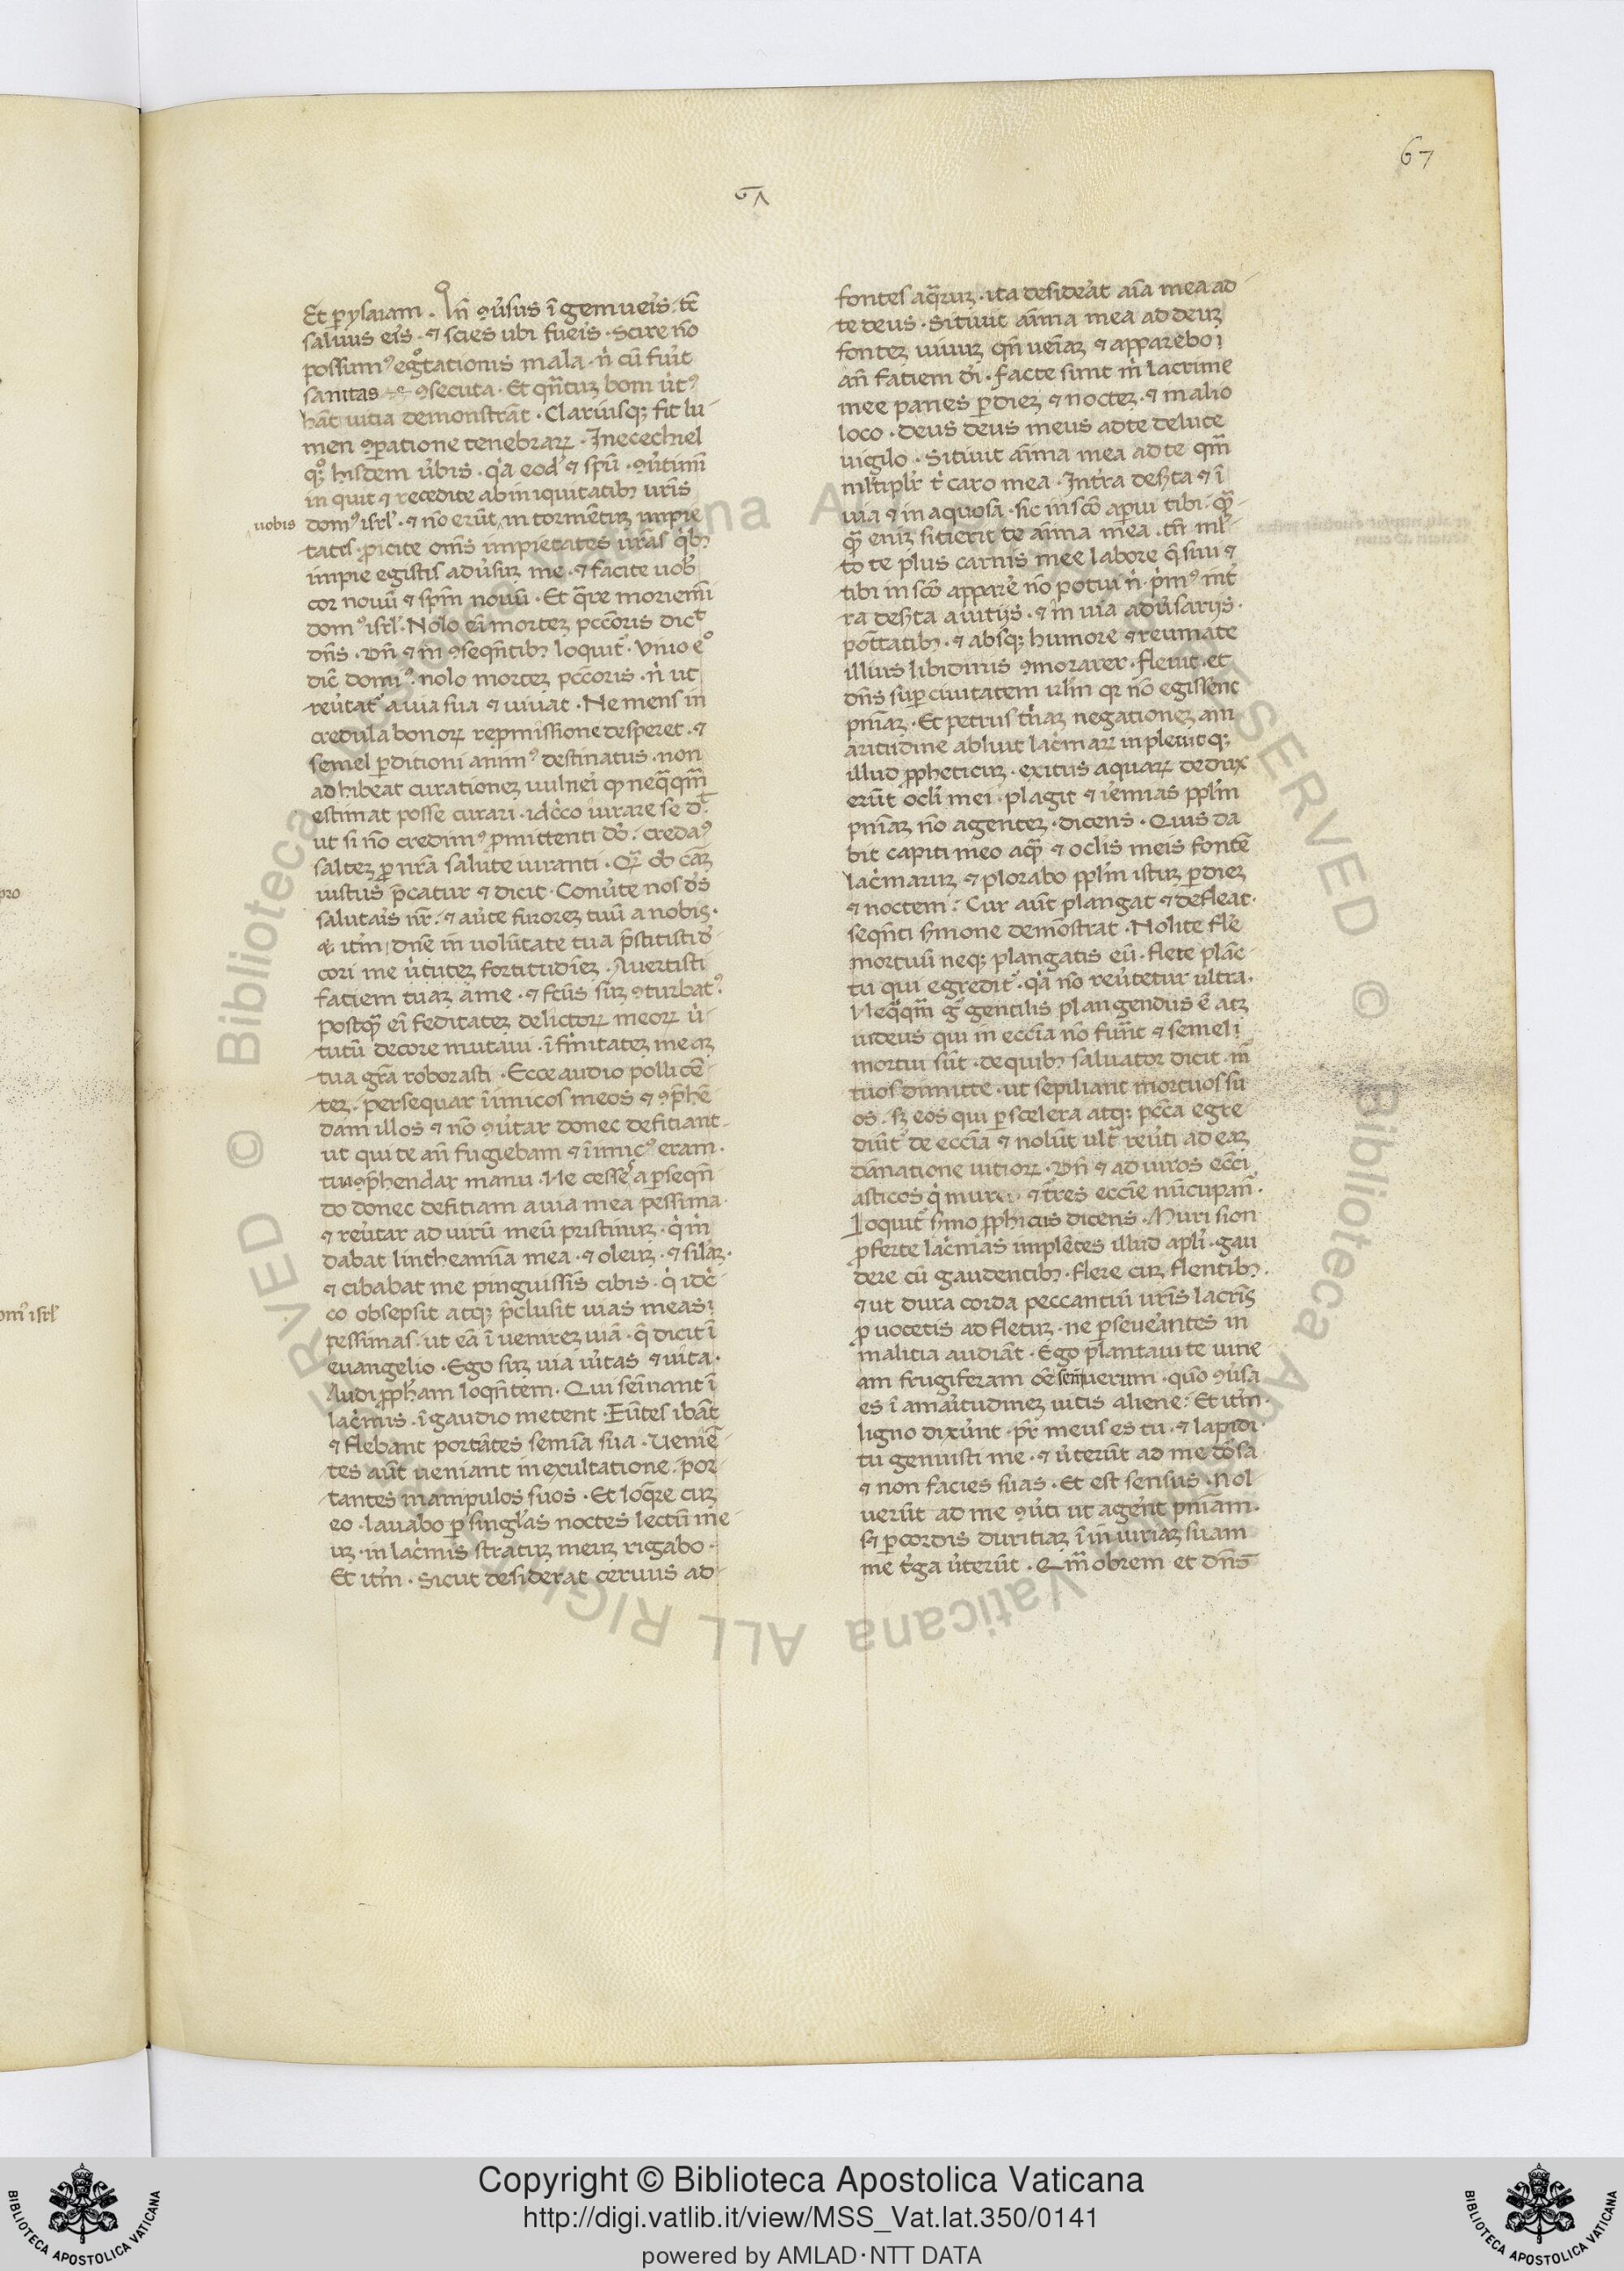 67
61
Et ꝑ ysaiam . Qn̄ ꝯu͛sus ī gemueis͛ . tc̄
saluus eis͛ . ⁊ scies ubi fueis͛ . Scire nō
possumꝰ egͦtationis mala . ń cū fuit͛
sanitas ꝯsecuta . Et qn̄tuꝫ bom u͛tꝰ
hāt uitia demonstrāt . Clariusqꝫ fit lu-
men ꝯꝑatione tenebraꝝ . Inecechiel
qꝫͦ hisdem u͛bis . qͥa eod̓ ⁊ spū . ꝯu͛timī
in quit ⁊ recedite ab iniquitatibꝫ ur̄is
uobis
domꝰ isrl̓ . ⁊ nō erūt in tormētuꝫ impie
tatis . ꝓicite om̄s impietates ur̄as qͥbꝫ
impie egistis adu͛suꝫ me . ⁊ facite uob̓
cor nouū ⁊ spm̄ nouū . Et qͣre moriemī
domꝰ isrl̓ . Nolo ei̓ morteꝫ pcc̄oris dicͭ
dn̄s . Vn̄ ⁊ in ꝯseqn̄tibꝫ loquit᷑ . Viuo eͦ
dic̄ domiꝰ . nolo morteꝫ pcc̄oris . ń ut
reu͛tat᷑ a uia sua ⁊ uiuat . Ne mens in
credula bonoꝝ repmissione desperet . ⁊
semel ꝑditioni animꝰ destinatus . non
adhibeat curationeꝫ uulnei͛ ꝙ neqͣqm̄
estimat posse curari . idc̓co iurare se dͭ .
ut si nō credimꝰ ꝓmittenti dō . credaꝰ
salteꝫ ꝓ nr̄a salute iuranti . Qͣ ob cāꝫ
iustus p̄catur ⁊ dicit . Conu͛te nos ds̄
salutais͛ nr̄ . ⁊ au͛te furoreꝫ tuū a nobis .
⁊ itm̓ dn̄e in uolūtate tua p̄stitisti d̓
cori me u͛tuteꝫ fortitudīeꝫ . Auertisti
faciem tuaꝫ a me . ⁊ fc̄us suꝫ ꝯturbatꝰ .
postqͣ ei̓ feditateꝫ delictoꝝ meoꝝ u͛-
tutū decore mutaui . īfirmitateꝫ meaꝫ
tua gr̄a roborasti . Ecce audio pollicē-
teꝫ . persequar īimicos meos ⁊ ꝯp̄hē
dam illos ⁊ nō ꝯu͛tar donec deficiant .
ut qui te an̄ fugiebam ⁊ īimicꝰ eram .
tua ꝯp̄hendar manu . Ne cesses͛ a ꝑseqn̄
do donec deficiam a uia mea pessima .
⁊ reu͛tar ad uirū meū pristinuꝫ . qͥ m̓
dabat lintheamīa mea . ⁊ oleuꝫ . ⁊ silāꝫ .
⁊ cibabat me pinguissīs cibis . qͥ idc̓
co obsepsit atqꝫ p̄clusit uias meas
pessimas . ut eā ī uenireꝫ uiā . q̄ dicit ī
euangelio . Ego suꝫ uia u͛itas ⁊ uita .
Audi ꝓph̓am loqn̄tem . Qui semīnant ī
lac̓mis . ī gaudio metent . Eūtes ibāt
⁊ flebant portātes semīa sua . Veniē-
tes aūt ueniant in exultatione . por-
tantes manipulos suos . Et loqͣre cuꝫ
eo . lauabo ꝑ singl̓as noctes lectū me
uꝫ . in lac̓mis stratuꝫ meuꝫ rigabo .
Et itm̓ . Sicut desiderat ceruus ad
fontes aqͣruꝫ . ita desideat͛ aīa mea ad
te deus . Sitiuit aīma mea ad deuꝫ
fonteꝫ uiuuꝫ qn̄ uen̄iaꝫ ⁊ apparebo
an̄ faciem d̓i . facte sunt m̓ lacrime
mee panes ꝑ dieꝫ ⁊ nocteꝫ . ⁊ in alio
loco . deus deus meus ad te de luce
uigilo . Sitiuit aīma mea ad te qm̄
ml̓tiplr̓ t̓ caro mea . In tr̓a des͛ta ⁊ ī
uia ⁊ in aquosa . sic in scō apꝑui tibi . qͣ-
qͣ eniꝫ sitierit te aīma mea . tn̄ ml̓
to te plus carnis mee labore q̄siui ⁊
tibi in scō appare͛ nō potui ń . pͥmꝰ int̓
ra des͛ta a uitiis . ⁊ in uia adu͛sariis .
potāt̄atibꝫ . ⁊ absqꝫ humore ⁊ reumate
illius libidinis ꝯmorarer . Fleuit . et
dn̄s suꝑ ciuitatem irl̄m qꝛ nō egissent
pn̄iaꝫ . Et petrus t̓naꝫ negationeꝫ am
aritudine abluit lac̓maꝝ inpleuitqꝫ
illud ꝓpheticuꝫ . exitus aquaꝝ dedux
erūt ocli̓ mei . plagit ⁊ ie͛mias ppl̓m
pn̄iaꝫ nō agenteꝫ . dicens . Quis da
bit capiti meo aqͣ ⁊ ocl̓is meis fontē
lac̓maruꝫ ⁊ plorabo ppl̓m istuꝫ ꝑ dieꝫ
⁊ noctem . Cur aūt plangat ⁊ defleat .
seqn̄ti s͛mone demōstrat . Nolite fle͛
mortuū neqꝫ plangatis eū . flete plāc-
tu qui egredit᷑ . qͥa nō reu͛tetur ultra .
Neqͣqm̄ gͦ gentilis plangendus ē atꝫ
iudeus qui in ecc̄ia nō fuīt ⁊ semel
mortui sūt . de quibꝫ saluator dicit . m̄
tuos dimitte . ut sepiliant mortuos su
os . sꝫ eos qui ꝑ scelera atqꝫ pcc̄a egre
diūt᷑ de ecc̄ia ⁊ nolūt ult̄ reu͛ti ad eaꝫ
dānatione uitioꝝ . Vn̄ ⁊ ad uiros ecc̄i
asticos qͥ muri ⁊ tr̄es ecc̄ie nūcupan̄ .
Loquit᷑ s͛mo ꝓphicus dicens . Muri sion
ꝓferte lac̓mas implētes illud apl̓i . gau
dere cū gaudentibꝫ . flere cuꝫ flentibꝫ .
⁊ ut dura corda peccantiū ur̄is lacris̄
ꝓuocetis ad fletuꝫ . ne ꝑseuea͛ntes in
malicia audiāt . Ego plantaui te uine
am frugiferam oē sem̄ uerum . quō ꝯu͛sa
es ī amai͛tudineꝫ uitis aliene . Et itm̓ .
ligno dixūnt . pr̄ meus es tu . ⁊ lapidi .
tu genuisti me . ⁊ u͛terūt ad me do͛sa
⁊ non facies suas . Et est sensus . nol-
uerūt ad me ꝯu͛ti ut agent͛ pn̄iam .
sꝫ ꝑ cordis duritiaꝫ ī iniuriaꝫ suam
me t͛ga u͛terūt . Qm̄ obrem et dn̄s
Copyright © Biblioteca Apostolica Vaticana
http://digi.vatlib.it/view/MSS_Vat.lat.350/0141
powered by AMLAD·NTT DATA